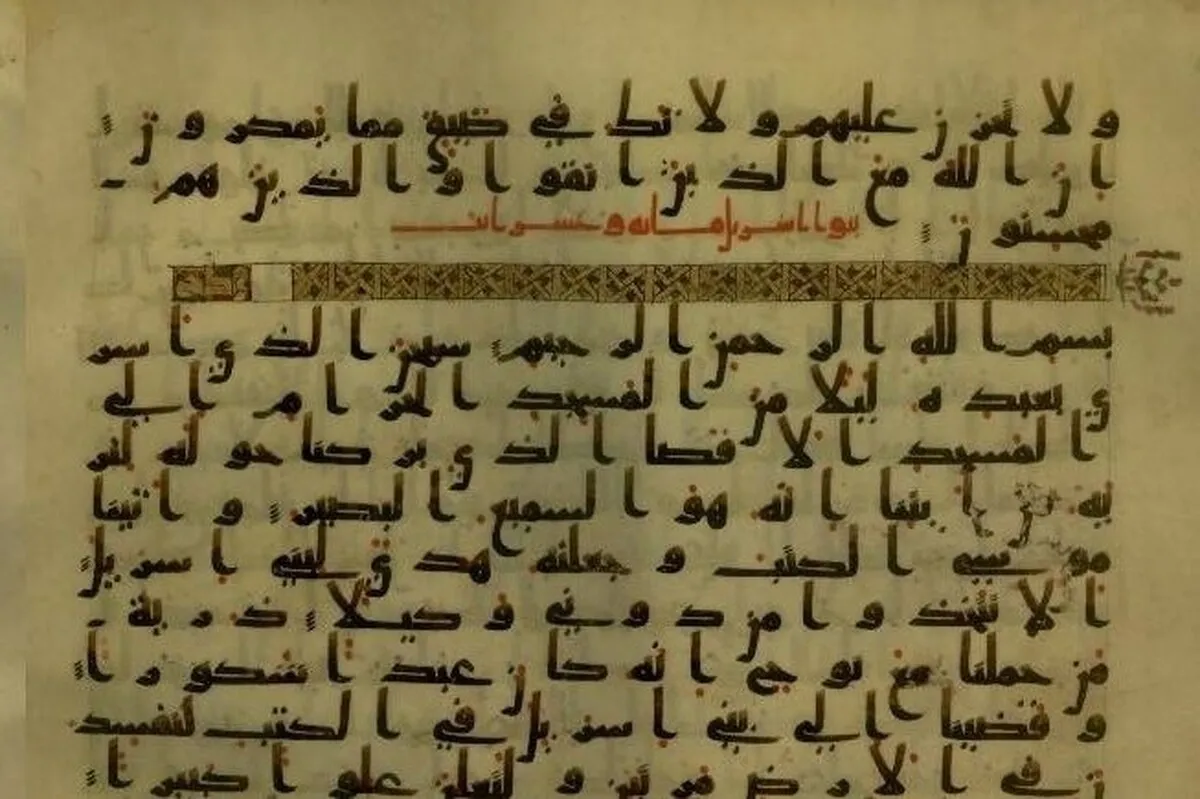 ولا تحزن عليهم ولا تك في ضيق مما يمكرون
ان الله مع الذين اتقوا والذين هم
محسنون
بنو ااسريل مايه وعشر ايت
بسم الله الرحمن الرحيم سبحن الذي اسر
ى بعبده ليلا من المسجد الحرام الى
المسجد الاقصا الذي بركنا حوله لنر
يه من ايتنا انه هو السميع البصير واتينا
موسى الكتب وجعلنه هدى لبني اسريل
الا تتخذوا من دوني وكيلا ذرية
من حملنا مع نوح انه كان عبدا شكورا
وقضينا الى بني اسريل في الكتب لتفسد
ن في الارض مرتين ولتعلن علوا كبيرا